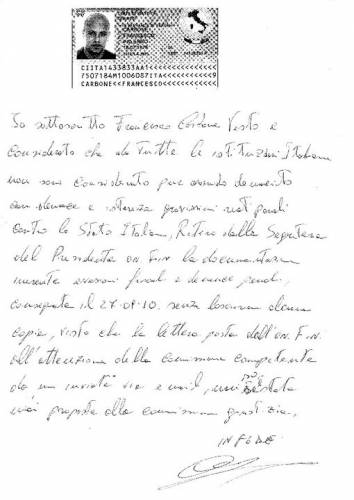 CARBONE
FRANCESCO
CIITA1433833AA1<<<<<<<<<<<<<<<
7507184M1006087ITA<<<<<<<<<<<9
CARBONE<<FRANCESCO<<<<<<<<<<<<
Io sottoscritto Francesco Carbone Visto e
Considerato che da Tutte le istituzioni Italiane
non sono considerato pur avendo
con denunce e
Contro lo Stato Italiano, Ritiro dalla Segreteria
del Presidente on. FINI la documentazione
inerente evasioni fiscali e denunce penali,
consegnata il 27.09.10. senza lasciarne alcuna
copia, visto che la lettera posta dall'on. FINI
all'attenzione della commissione competente
da me inviata via e mail, mai è stata
mai proposta alla commissione giustizia.
IN FEDE